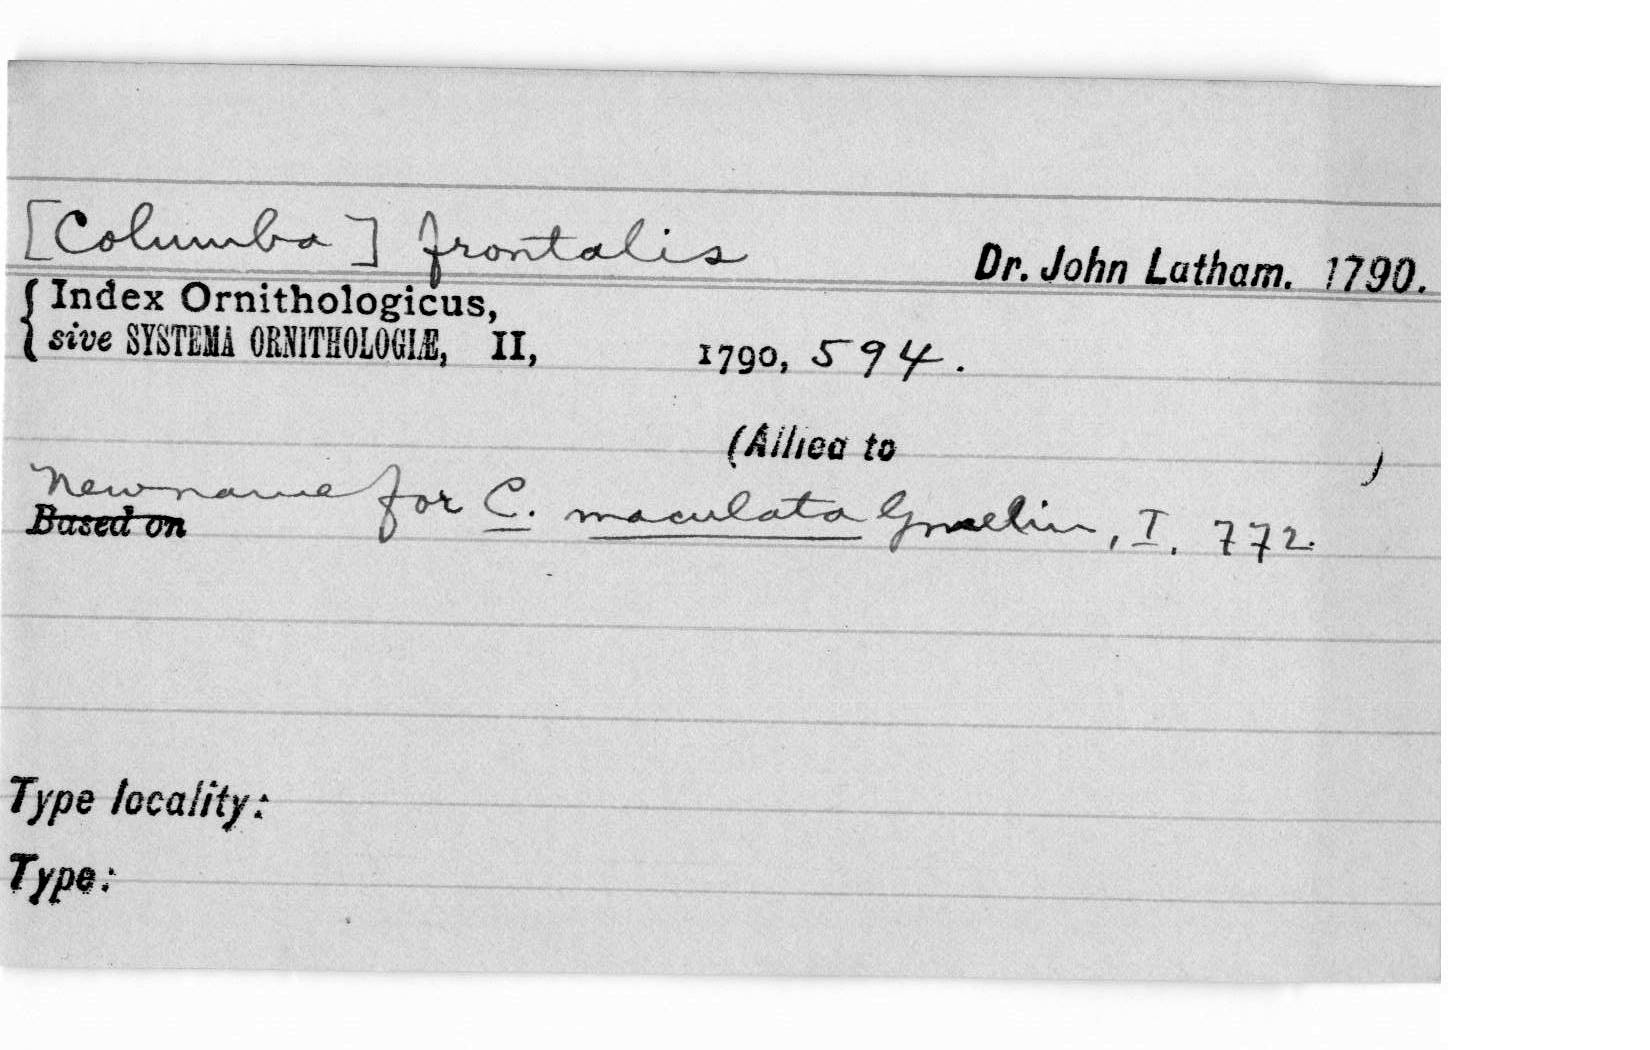 [Columba] frontalis Dr. John Latham. 1790.
Index Ornithologicus,
sive SYSTEMA ORNITHOLOGIÆ, II, 1790, 594.
(Allied to )
New name for C. maculata Gmelin, I. 772.
Based on
Type locality:
Type: